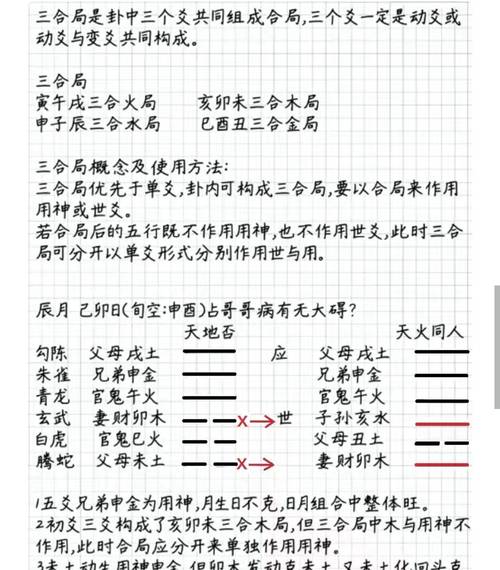 三合局是卦中三个爻共同组成合局,三个爻一定是动爻或
动爻与变爻共同构成。
三合局
寅午戌三合火局 亥卯未三合木局
申子辰三合水局 巳酉丑三合金局
三合局概念及使用方法:
三合局优先于单爻,卦内可构成三合局,要以合局来作用
用神或世爻。
若合局后的五行既不作用用神,也不作用世爻,此时三合
局可分开以单爻形式分别作用世与用。
辰月 己卯日(旬空:申酉)占哥哥病有无大碍?
天地否 天火同人
勾陈 父母戌土 应 父母戌土
朱雀 兄弟申金 兄弟申金
青龙 官鬼午火 官鬼午火
玄武 妻财卯木 X→世 子孙亥水
白虎 官鬼巳火 父母丑土
腾蛇 父母未土 X→ 妻财卯木
1五爻兄弟申金为用神,月生日不克,日月组合中整体旺。
2初爻三爻构成了亥卯未三合木局,但三合局中木与用神不
作用,此时合局应分开来单独作用用神。
3未土动生用神申金,但卯木发动克未土,又未土化回头克